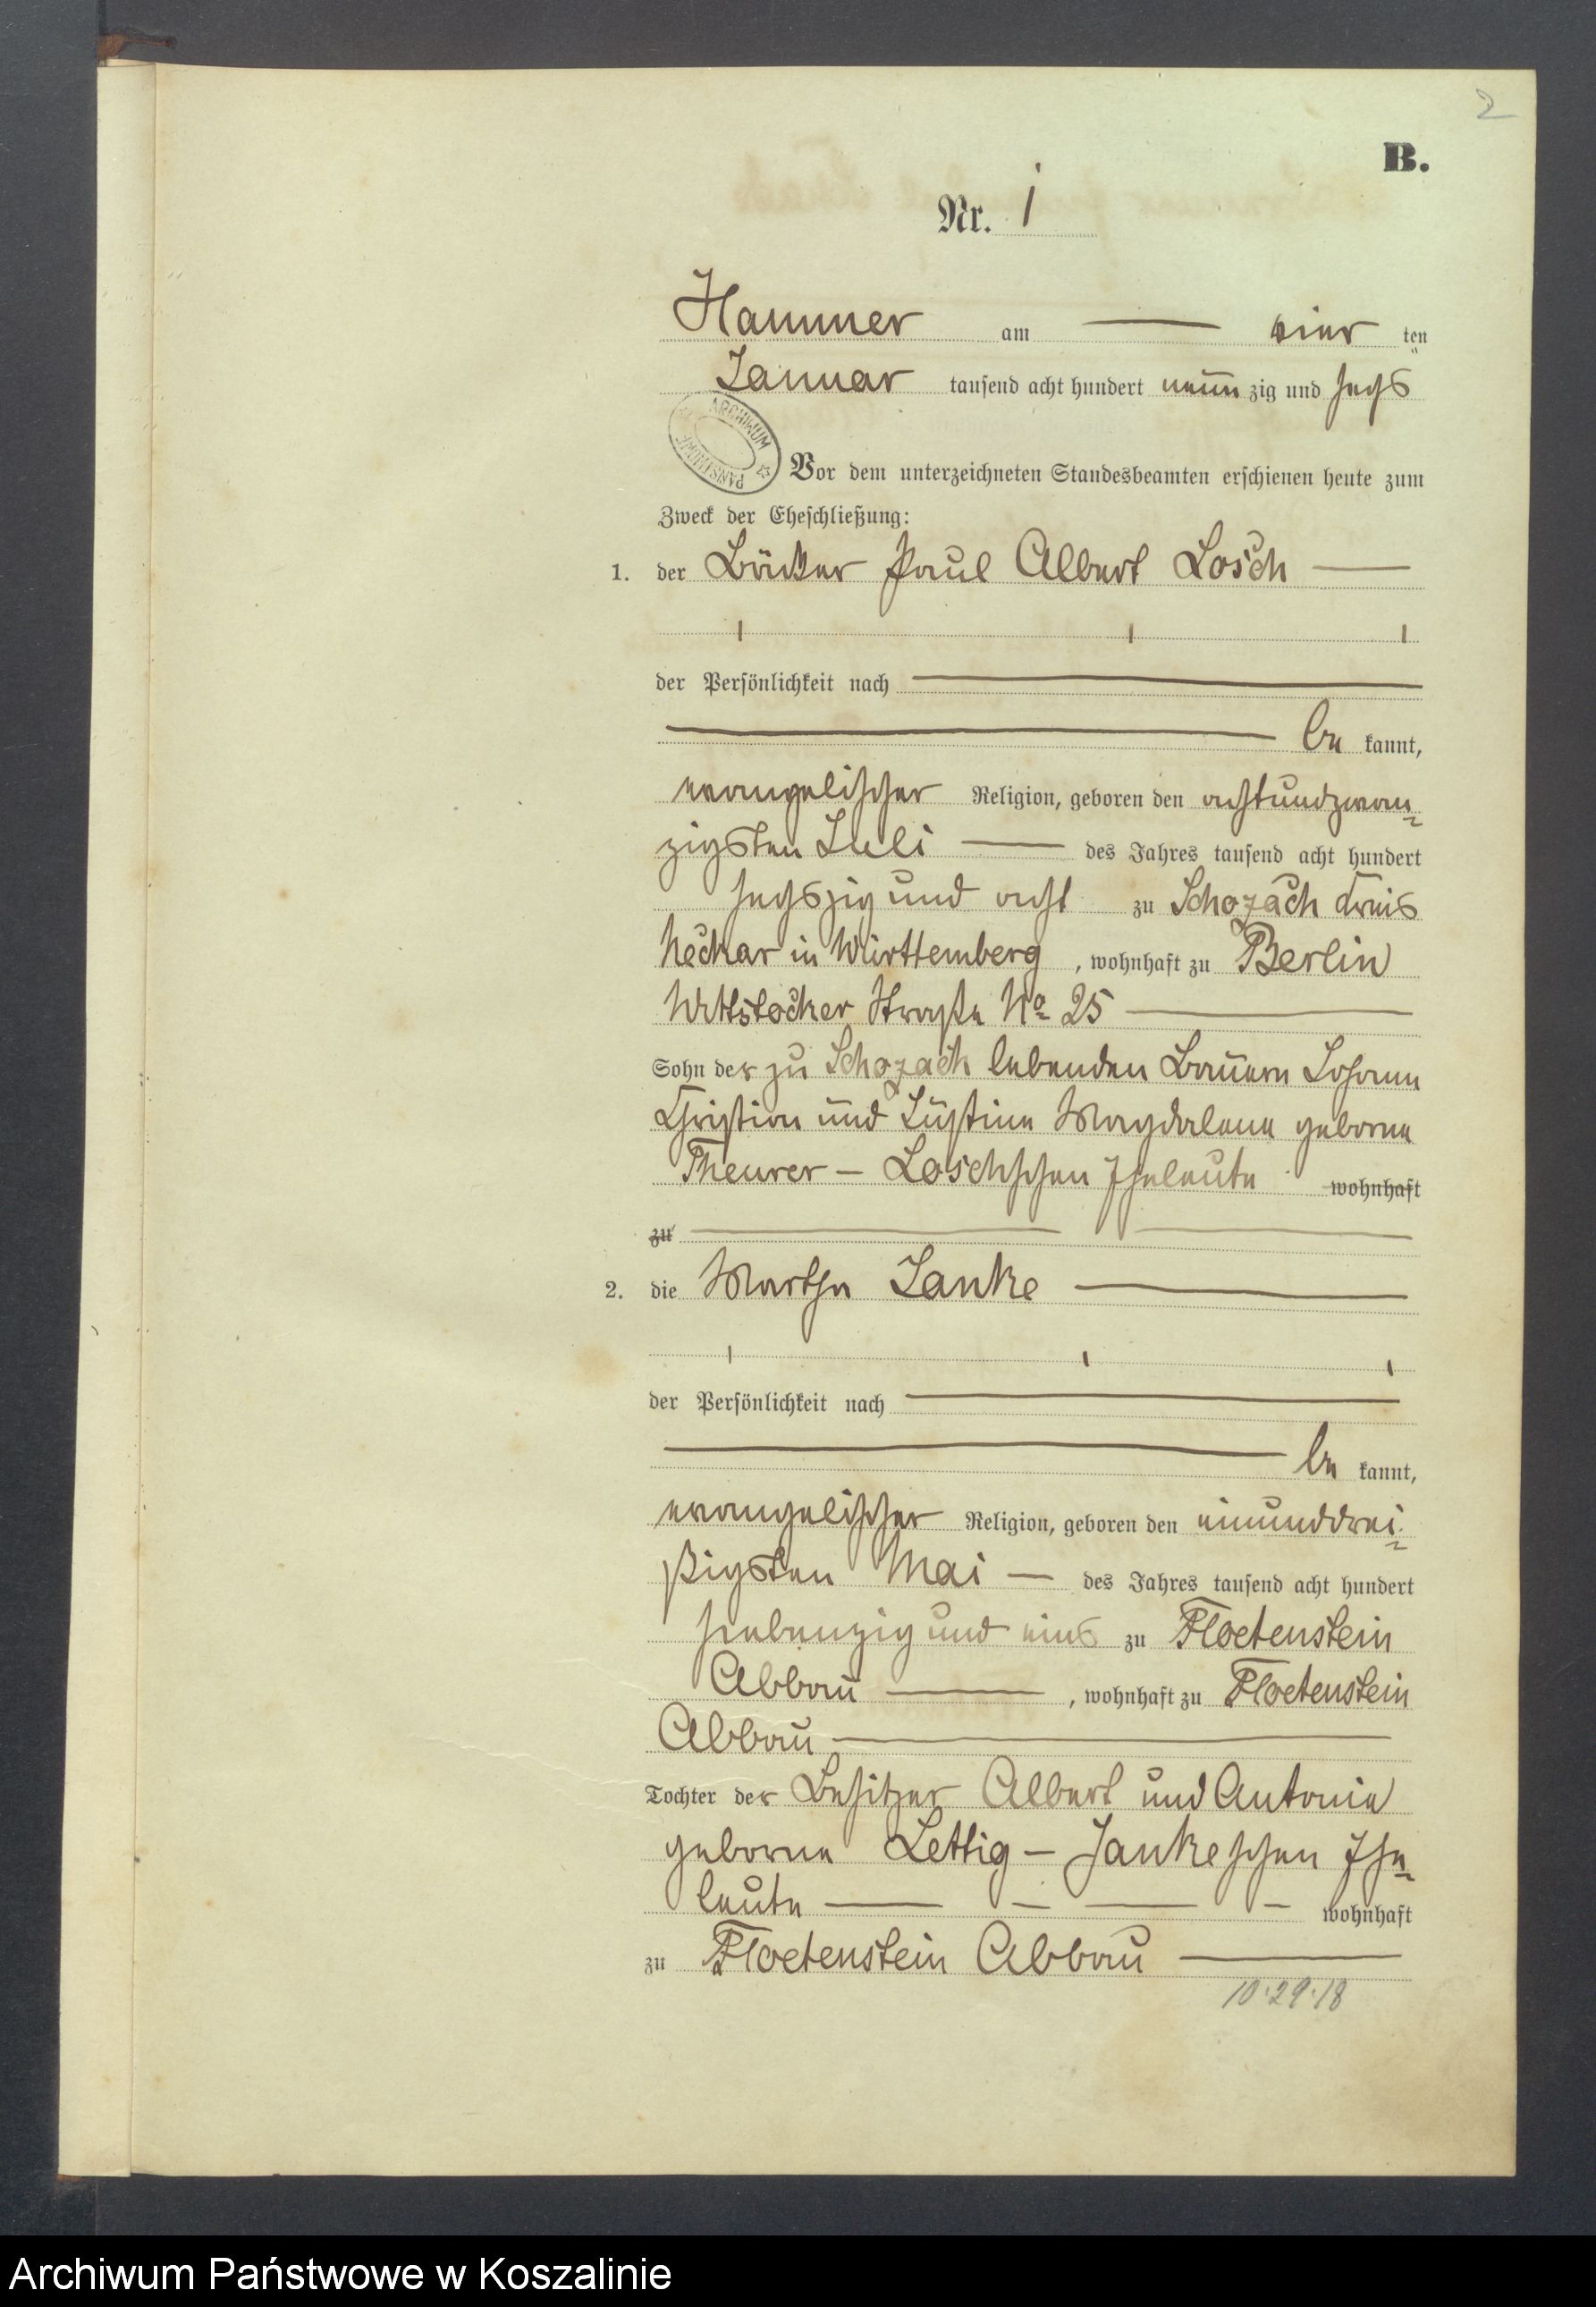 2
B.
Nr. 1
Hammer am vier ten
Januar tausend acht hundert neun zig und sechs
ARCHIWUM PAŃSTWOWE
Vor dem unterzeichneten Standesbeamten erschienen heute zum
Zweck der Eheschließung:
1. der Bäcker Paul Albert Losch
der Persönlichkeit nach
be kannt,
evangelischer Religion, geboren den achtundzwan
zigsten Juli des Jahres tausend acht hundert
sechszig und acht zu Schozach Kreis
Neckar in Württemberg, wohnhaft zu Berlin
Wittstocker Straße No 25
Sohn der zu Schozach lebenden Bauern Johann
Christian und Justine Magdalene geborne
Theurer - Losch'schen Eheleute wohnhaft
zu
2. die Martha Janke
der Persönlichkeit nach
be kannt,
evangelischer Religion, geboren den einunddrei
ßigsten Mai des Jahres tausend acht hundert
siebenzig und eins zu Floetenstein
Abbau, wohnhaft zu Floetenstein
Abbau
Tochter der Besitzer Albert und Antonie
geborne Lettig - Janke'schen Ehe
leute wohnhaft
zu Floetenstein Abbau
10.29.18
Archiwum Państwowe w Koszalinie